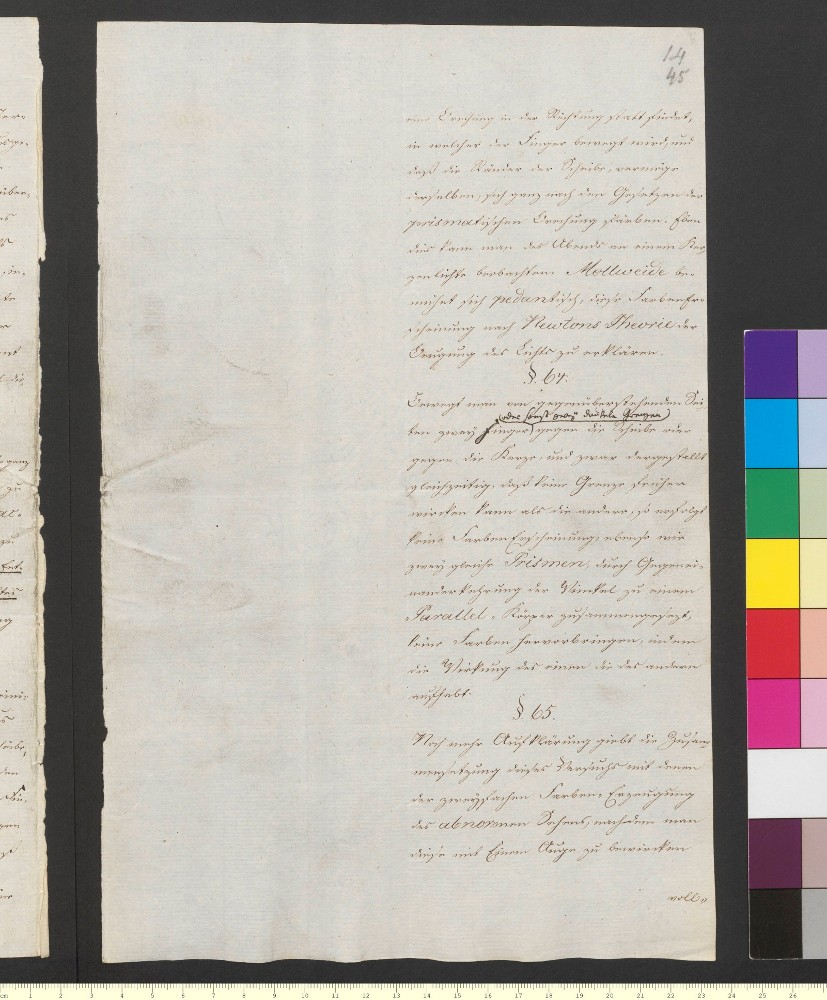 14
45
eine Brechung in der Richtung statt findet,
in welcher der Finger bewegt wird, und
daß die Ränder der Scheibe, vermöge
derselben, sich ganz nach den Gesetzen der
prismatischen Brechung färben. Eben
dies kann man des Abends an einem Ker,
zenlichte beobachten. Mollweide be,
mühet sich pedantisch, diese FarbenEr,
scheinung nach Newtons Theorie der
Beugung des Lichts zu erklären.
§. 64.
Bewegt man von gegenüberstehenden Sei
(oder sonst zwey dunkele Grenzen)
ten zwey Finger gegen die Scheibe oder
gegen die Kerze, und zwar dergestallt
gleichzeitig, daß keine Grenze früher
wircken kann als die andere, so erfolgt
keine FarbenErscheinung; ebenso wie
zwey gleiche Prismen, durch Gegenei,
nanderkehrung der Winkel zu einem
Parallel-Körper zusammengesezt,
keine Farben hervorbringen, indem
die Wirkung des einen die des andern
aufhebt.
§. 65.
Noch mehr Aufklärung giebt die Zusam,
mensetzung dieses Versuchs mit denen
der zweyfachen Farben-Erzeugung
des abnormen Sehens, nachdem man
diese mit Einem Auge zu bewircken
voll,,